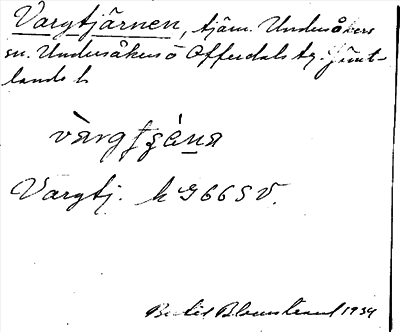 Vargtjärnen, tjärn. Undersåkers
sn. Undersåkers o Offerdals tg. Jämt-
lands l.
Vargtj. k G66SV.
Bertil Blomstrand 1934